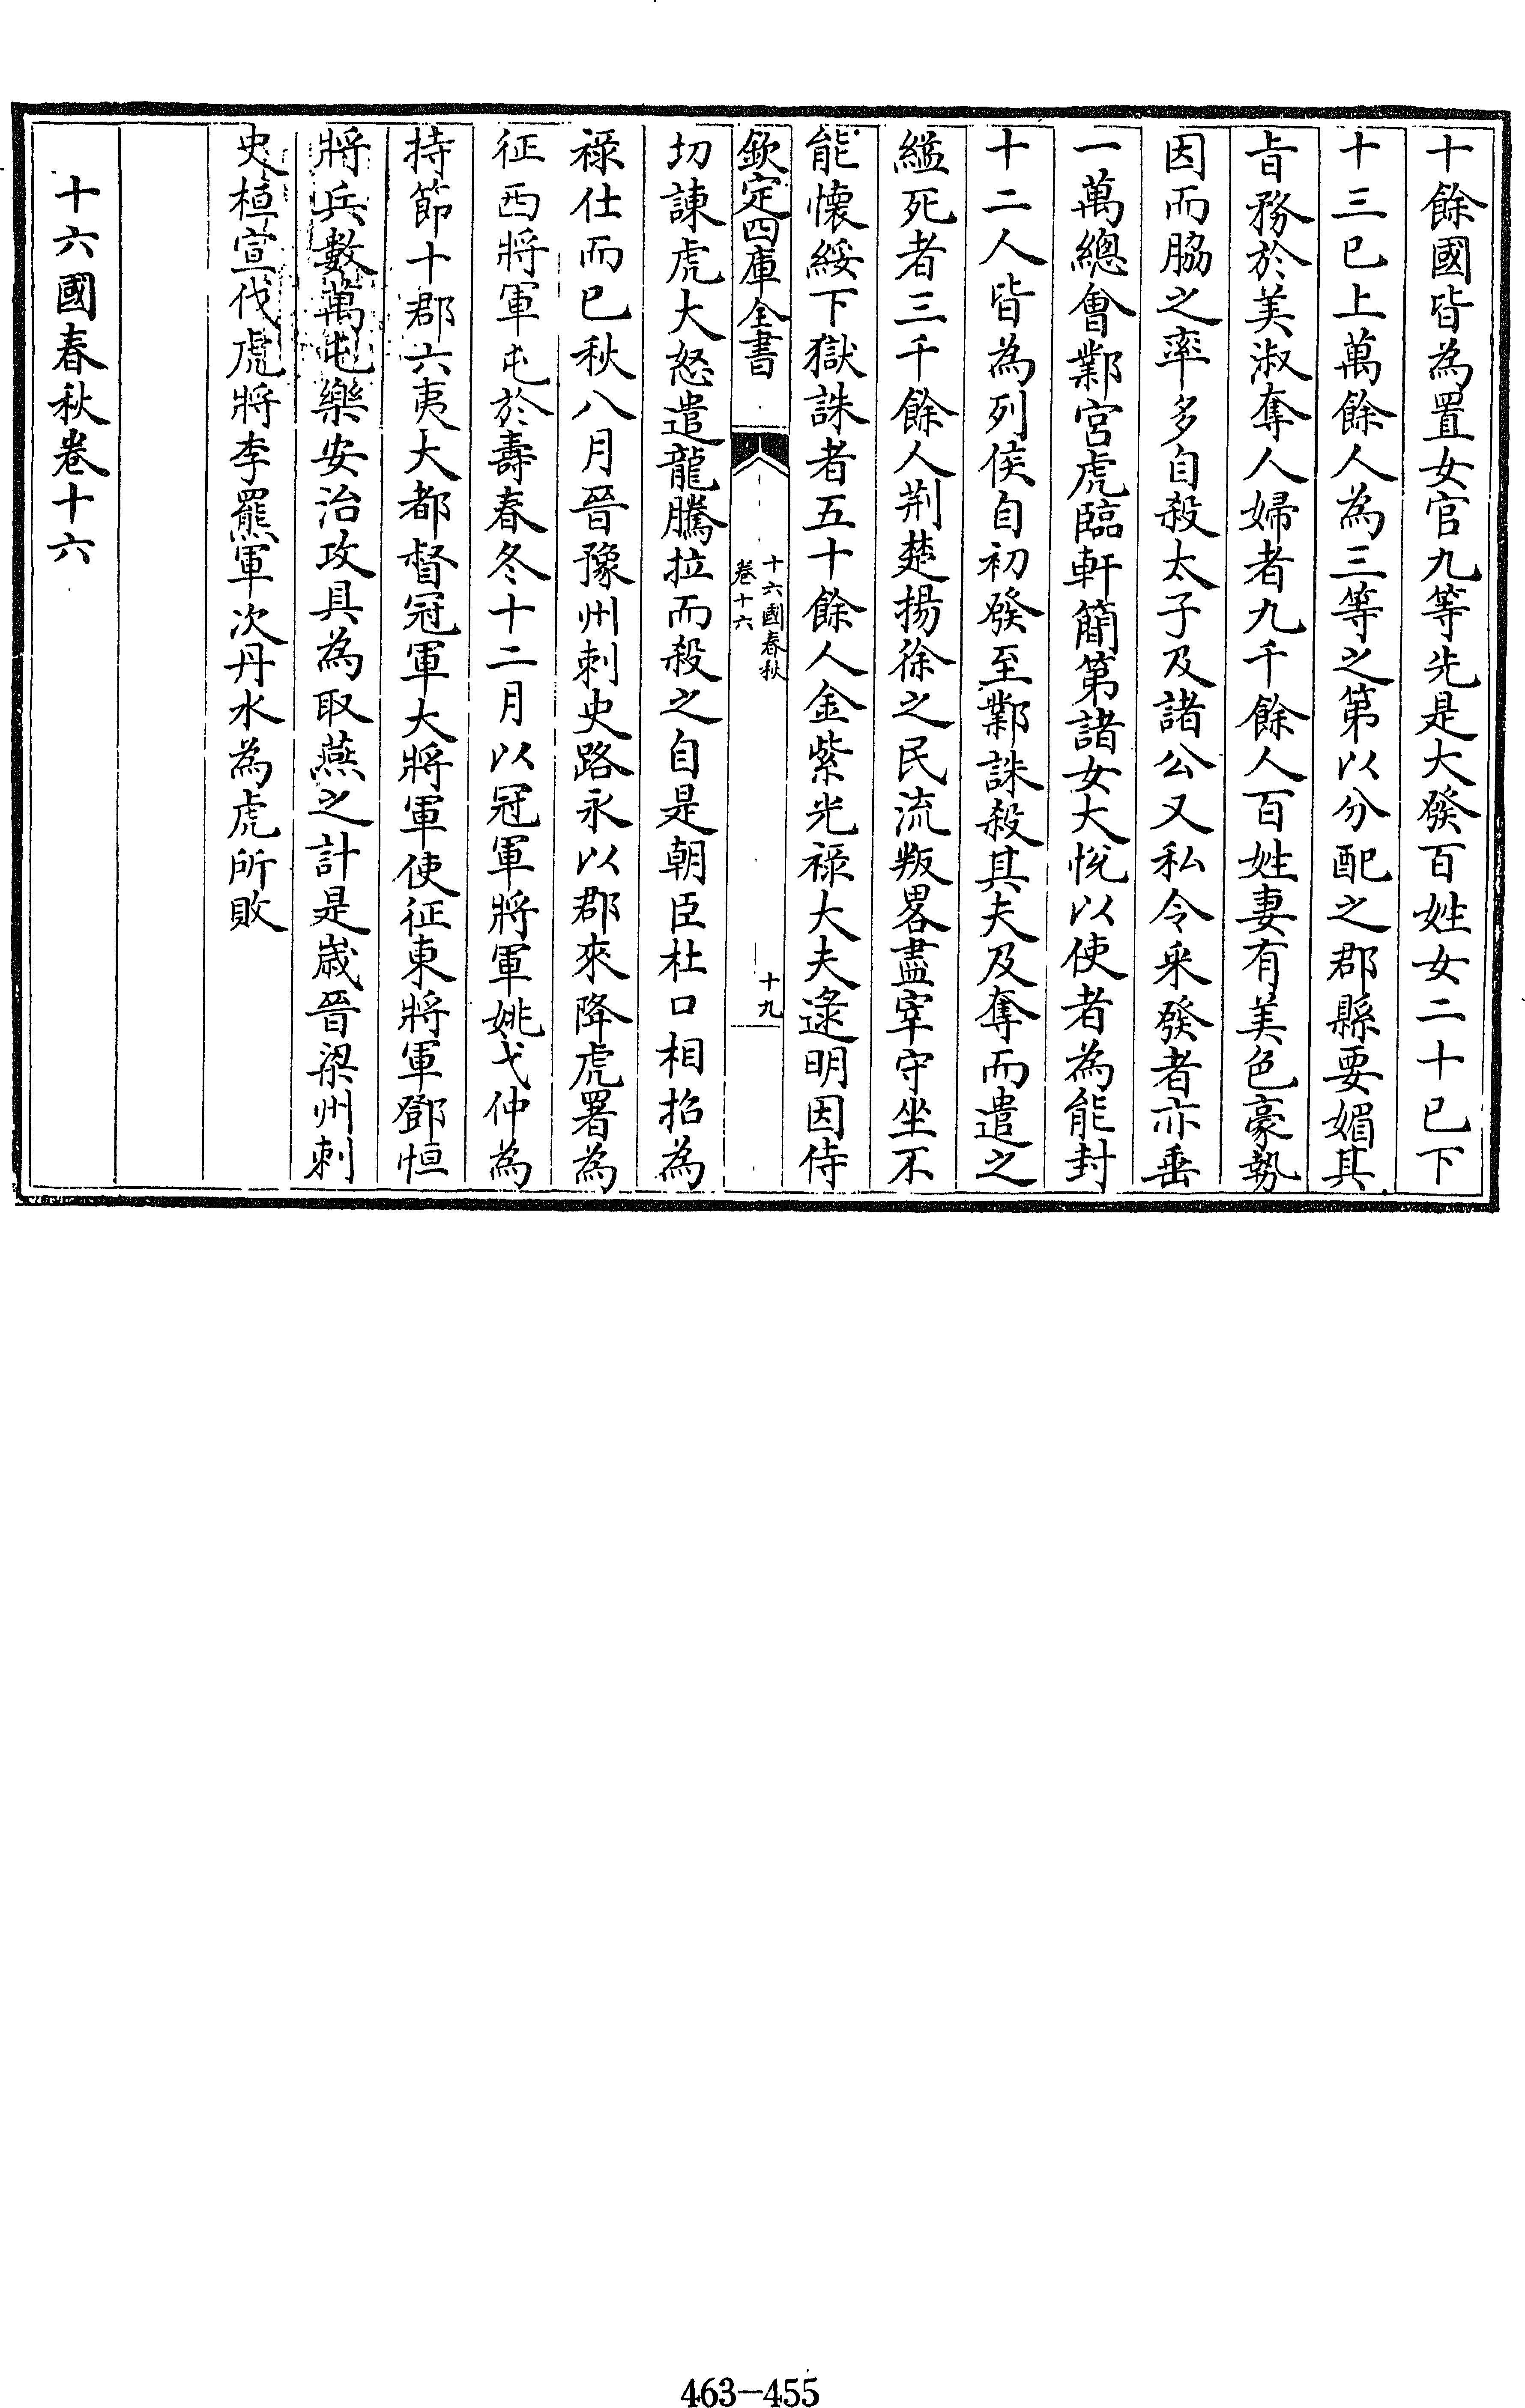 十餘國皆為置女官九等先是大發百姓女二十已下
十三已上萬餘人為三等之第以分配之郡縣要媚其
旨務於美淑奪人婦者九千餘人百姓妻有美色豪勢
因而脇之率多自殺太子及諸公又私令采發者亦垂
一萬總㑹鄴宮虎臨軒簡第諸女大悅以使者為能封
十二人皆為列侯自初發至鄴誅殺其夫及奪而遣之
縊死者三千餘人荆楚揚徐之民流叛畧盡宰守坐不
能懷綏下獄誅者五十餘人金紫光禄大夫逯明因侍
欽定四庫全書
十六國春秋
卷十六
十九
切諫虎大怒遣龍騰拉而殺之自是朝臣杜口相招為
禄仕而已秋八月晉豫州刺史路永以郡來降虎署為
征西將軍屯於壽春冬十二月以冠軍將軍姚弋仲為
持節十郡六夷大都督冠軍大將軍使征東將軍鄧恒
將兵數萬屯樂安治攻具為取燕之計是歲晉梁州刺
史桓宣伐虎將李羆軍次丹水為虎所敗
十六國春秋卷十六
463-455